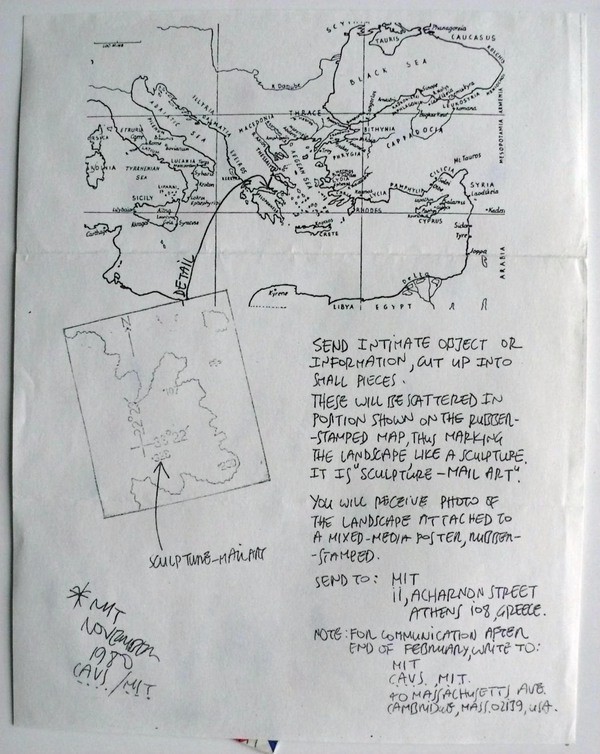 SCYTHIA
Phanagoreia
CAUCASUS
TAURIS
BLACK SEA
R. Danube
ILLYRIA
DALMATIA
ADRIATIC SEA
THRACE
MACEDONIA
BITHYNIA
CAPPADOCIA
MESOPOTAMIA ARMENIA
ETRURIA
LUCANIA
EPIRUS
AEGEAN SEA
PHRYGIA
TYRRHENIAN
SEA
LIPARI
SICILY
Syracuse
Mt Tauros
CILICIA
PAMPHYLIA
SYRIA
RHODES
CYPRUS
CRETE
Sidon
Tyre
Joppa
ARABIA
Kyrene
Delta
LIBYA EGYPT
DETAIL
N
22°
38°22'
SCULPTURE-MAIL ART
SEND INTIMATE OBJECT OR
INFORMATION, CUT UP INTO
SMALL PIECES.
THESE WILL BE SCATTERED IN
POSITION SHOWN ON THE RUBBER-
-STAMPED MAP, THUS MARKING
THE LANDSCAPE LIKE A SCULPTURE.
IT IS "SCULPTURE-MAIL ART".
YOU WILL RECEIVE PHOTO OF
THE LANDSCAPE ATTACHED TO
A MIXED-MEDIA POSTER, RUBBER-
-STAMPED.
SEND TO: MIT
11, ACHARNON STREET
ATHENS 108, GREECE.
NOTE: FOR COMMUNICATION AFTER
END OF FEBRUARY, WRITE TO:
MIT
C.A.V.S., M.I.T.
40 MASSACHUSETTS AVE.
CAMBRIDGE, MASS. 02139, USA.
* MIT
NOVEMBER
1980
C.A.V.S. / M.I.T